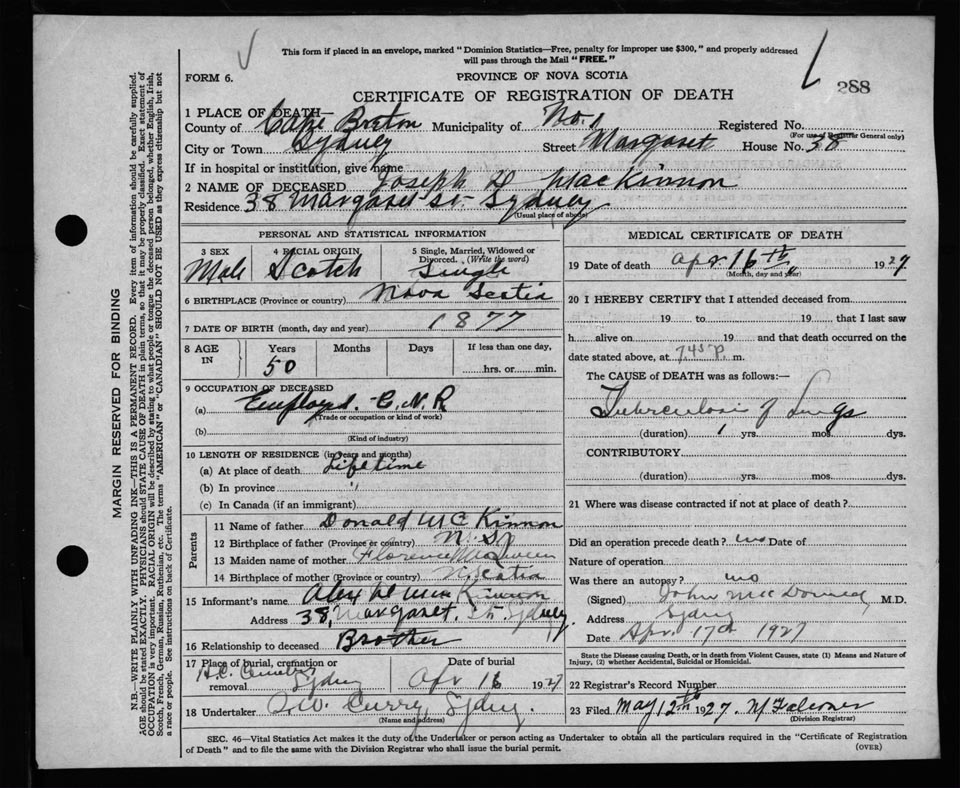 This form if placed in an envelope, marked "Dominion Statistics—Free, penalty for improper use $300," and properly addressed
will pass through the Mail "FREE."
FORM 6.
PROVINCE OF NOVA SCOTIA
288
CERTIFICATE OF REGISTRATION OF DEATH
1 PLACE OF DEATH—
County of Cape Breton Municipality of No 1 Registered No.
(For use of Registrar General only)
City or Town Sydney Street Margaret House No. 38
If in hospital or institution, give name
2 NAME OF DECEASED Joseph D MacKinnon
Residence 38 Margaret St- Sydney
(Usual place of abode)
PERSONAL AND STATISTICAL INFORMATION
3 SEX 4 RACIAL ORIGIN 5 Single, Married, Widowed or
Divorced. (Write the word)
Male Scotch Single
6 BIRTHPLACE (Province or country) Nova Scotia
7 DATE OF BIRTH (month, day and year) 1877
8 AGE IN Years Months Days If less than one day,
50 hrs. or min.
9 OCCUPATION OF DECEASED
(a) Employd. C.N.R
(Trade or occupation or kind of work)
(b)
(Kind of industry)
10 LENGTH OF RESIDENCE (in years and months)
(a) At place of death Lifetime
(b) In province "
(c) In Canada (if an immigrant)
Parents
11 Name of father Donald McKinnon
12 Birthplace of father (Province or country) N.S.
13 Maiden name of mother Florence
14 Birthplace of mother (Province or country) N. Scotia
15 Informant's name Alex Kinnon
Address 38, Margaret. St. Sydney.
16 Relationship to deceased Brother
17 Place of burial, cremation or removal Date of burial
Sydney Apr 18 1927
18 Undertaker Curry, Sydney.
(Name and address)
MEDICAL CERTIFICATE OF DEATH
19 Date of death Apr 16th 1927
(Month, day and year)
20 I HEREBY CERTIFY that I attended deceased from
19 to 19 that I last saw
h alive on 19 and that death occurred on the
date stated above, at 7.45 P. m.
The CAUSE of DEATH was as follows:—
Tuberculosis of Lungs
(duration) 1 yrs. mos. dys.
CONTRIBUTORY
(duration) yrs. mos. dys.
21 Where was disease contracted if not at place of death?
Did an operation precede death? no Date of
Nature of operation
Was there an autopsy? no
(Signed) John McDonald M.D.
Address Sydney
Date Apr. 17th 1927
State the Disease causing Death, or in death from Violent Causes, state (1) Means and Nature of
Injury, (2) whether Accidental, Suicidal or Homicidal.
22 Registrar's Record Number
23 Filed May 12th 1927. N Falconer
(Division Registrar)
SEC. 46—Vital Statistics Act makes it the duty of the Undertaker or person acting as Undertaker to obtain all the particulars required in the "Certificate of Registration
of Death" and to file the same with the Division Registrar who shall issue the burial permit. (OVER)
MARGIN RESERVED FOR BINDING
N.B.—WRITE PLAINLY WITH UNFADING INK—THIS IS A PERMANENT RECORD. Every item of information should be carefully supplied.
AGE should be stated EXACTLY. PHYSICIANS should STATE CAUSE OF DEATH in plain terms, so that it may be properly classified. Exact statement of
OCCUPATION is very important. RACIAL ORIGIN will be described by stating to what people or tongue the deceased person belonged, whether English, Irish,
Scotch, French, German, Russian, Ruthenian, etc. The terms "AMERICAN" or "CANADIAN" SHOULD NOT BE USED as they express citizenship but not
a race or people. See instructions on back of Certificate.